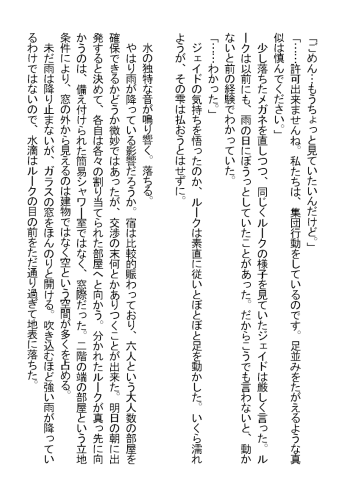 「ごめん…もうちょっと見ていたいんだけど。」
「……許可出来ませんね。私たちは、集団行動をしているのです。足並みをたがえるような真
似は慎んでください。」
　少し落ちたメガネを直しつつ、同じくルークの様子を見ていたジェイドは厳しく言った。ル
ークは以前にも、雨の日にぼうっとしていたことがあった。だからこうでも言わないと、動か
ないと前の経験でわかっていた。
「……わかった。」
　ジェイドの気持ちを悟ったのか、ルークは素直に従いとぼとぼと足を動かした。いくら濡れ
ようが、その雫は払おうとはせずに。
水の独特な音が鳴り響く。落ちる。
　やはり雨が降っている影響だろうか。宿は比較的賑わっており、六人という大人数の部屋を
確保できるかどうか微妙ではあったが、交渉の末何とかありつくことが出来た。明日の朝に出
発すると決めて、各自は各々の割り当てられた部屋へと向かう。分かれたルークが真っ先に向
かうのは、備え付けられた簡易シャワー室ではなく、窓際だった。二階の端の部屋という立地
条件により、窓の外から見えるのは建物ではなく空という空間が多くを占める。
　未だ雨は降り止まないが、ガラスの窓をほんのりと開ける。吹き込むほど強い雨が降ってい
るわけではないので、水滴はルークの目の前をただ通り過ぎて地表に落ちた。